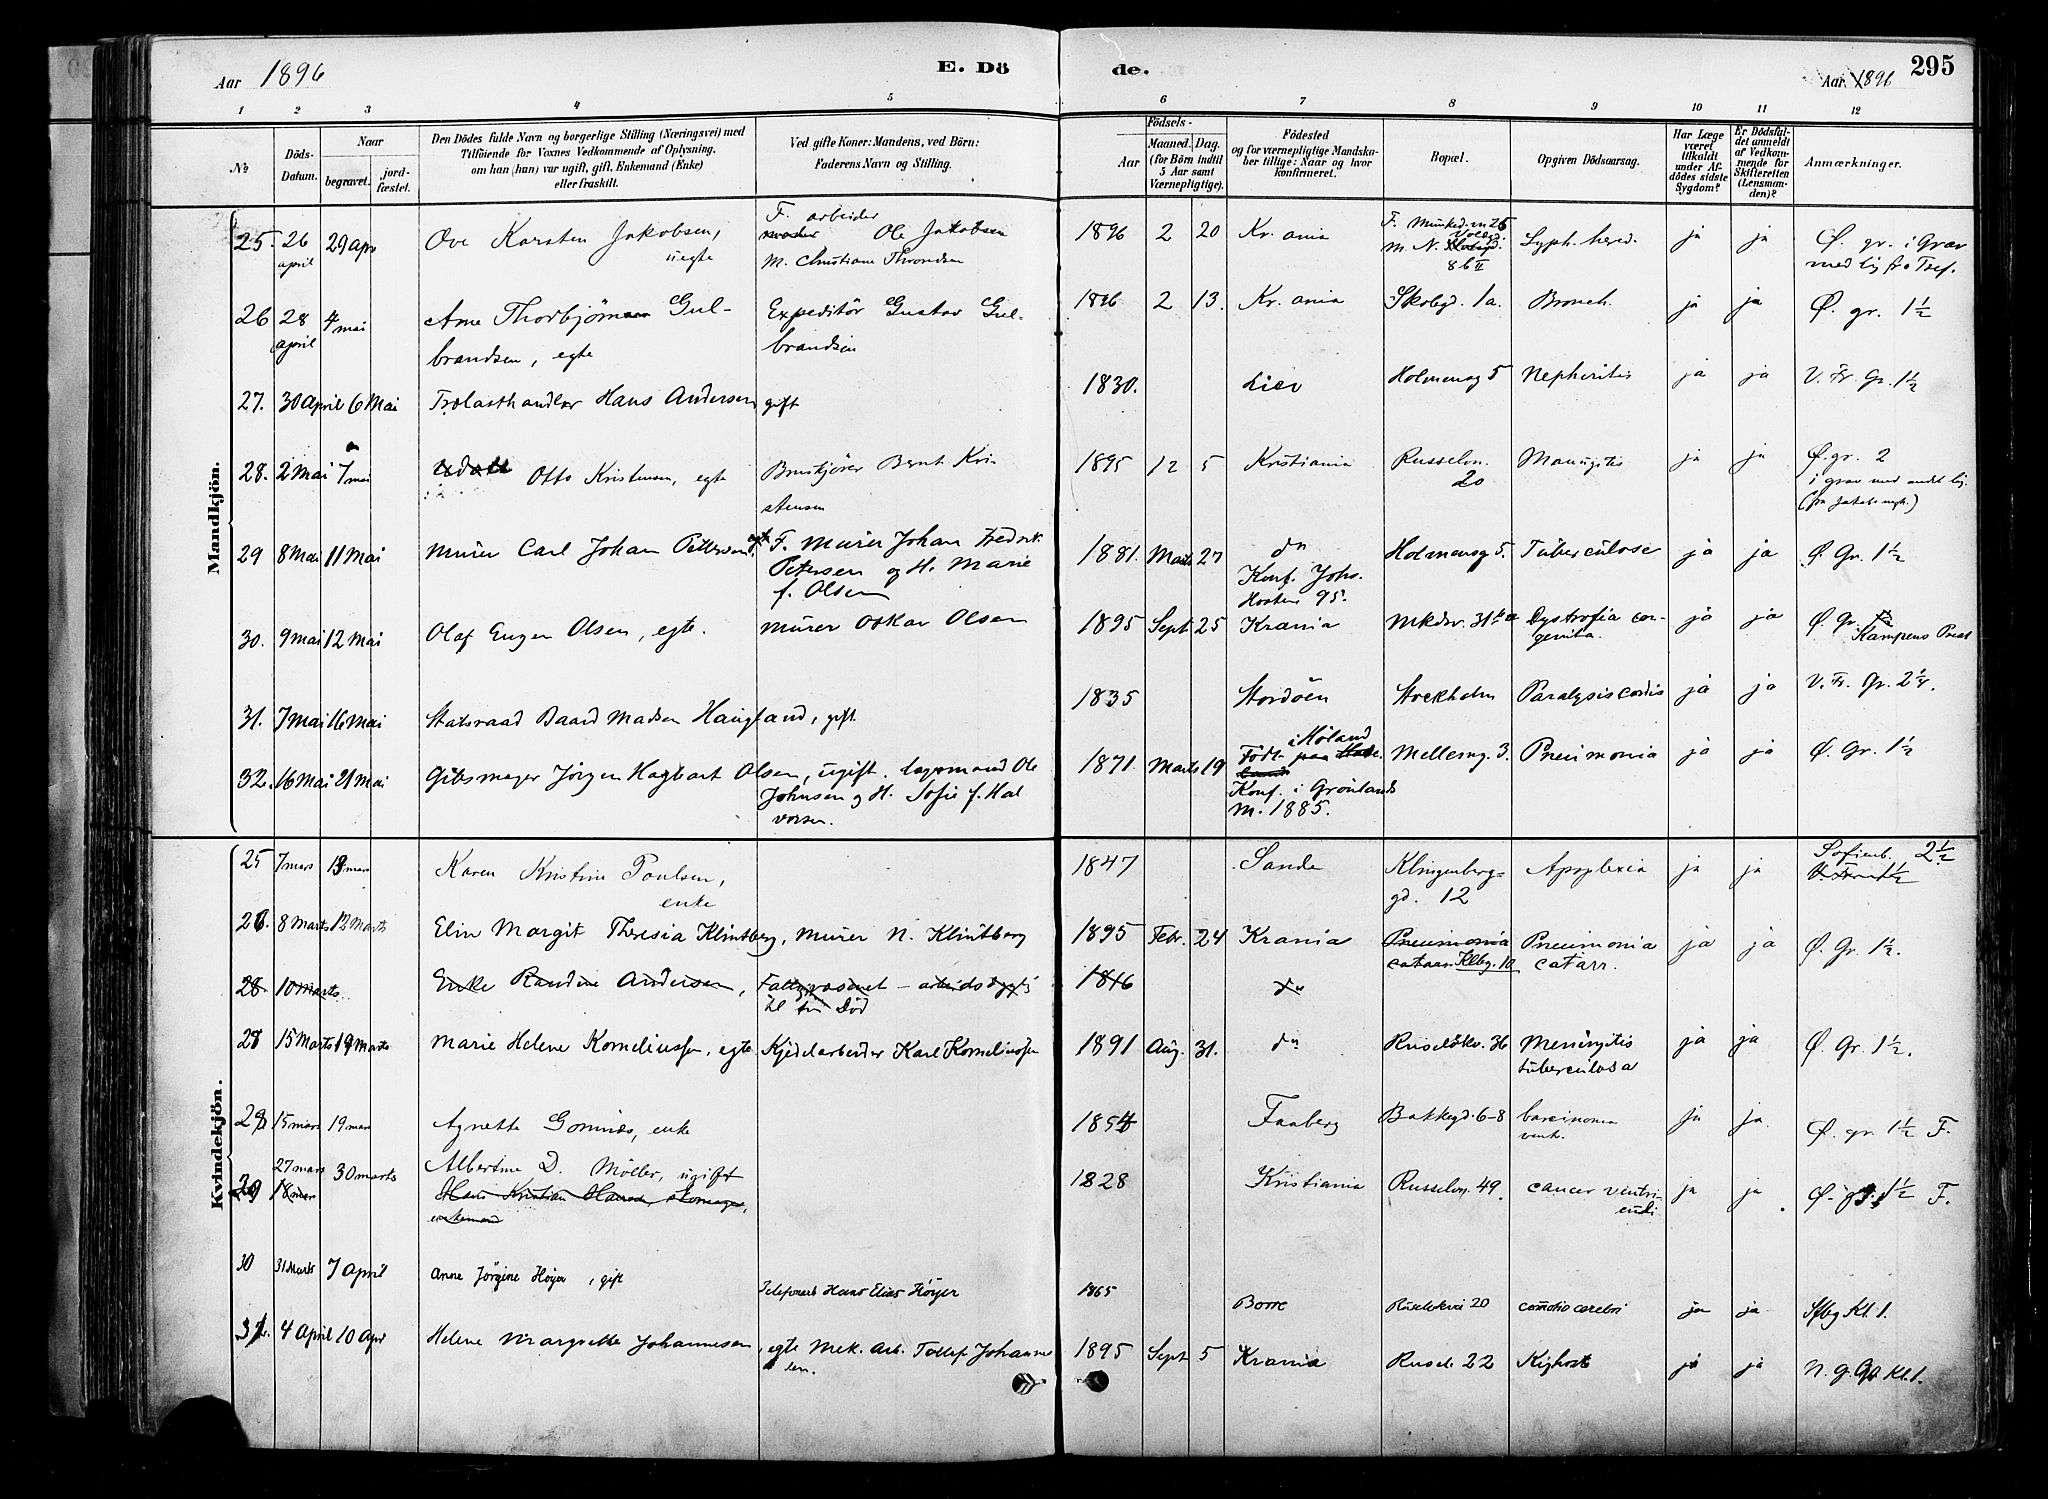 Aar 1896 E. Dö de. Aar 1896 295
1 2 3 4 5 6 7 8 9 10 11 12
№ Döds-Datum. Naar begravet. jord-fæstet. Den Dödes fulde Navn og borgerlige Stilling (Næringsvei) med Tilföiende for Voxnes Vedkommende af Oplysning, om han (hun) var ugift, gift, Enkemand (Enke) eller fraskilt. Ved gifte Koner: Mandens, ved Börn: Faderens Navn og Stilling. Födsels- Aar Maaned. Dag. (for Börn indtil 5 Aar samt Værnepligtige). Födested og for værnepligtige Mandskaber tillige: Naar og hvor konfirmeret. Bopæl. Opgiven Dödsaarsag. Har Læge været tilkaldt under Afdödes sidste Sygdom? Er Dödsfaldet anmeldt af Vedkommende for Skifteretten (Lensmanden)? Anmærkninger.
Mandkjön.
25. 26 april 29 apr Ove Karsten Jakobsen, uegte F. arbeider Ole Jakobsen M. Christiane Throndsen 1896 2 20 Kr.ania F. Munked.v. 26 M. N. Voldg. 8b II Syph. hered. ja ja Ø. gr. i Grav med lig fr. Tref.
26 28 april 4 mai Arne Thorbjörn Gulbrandsen, egte Expeditör Gustav Gulbrandsen 1896 2 13. Kr.ania Skobgd. 1a. Bronch. ja ja Ø. gr. 1½
27. 30 April 6 Mai Trælasthandler Hans Andersen gift 1830. Lier Holmensg 5 Nephritis ja ja V. Fr. Gr. 1½
28. 2 Mai 7 mai Otto Kristensen, egte Bruskjører Bernt Kristensen 1895 12 5 Kristiania Russelvn. 20 Manigitis ja ja Ø. gr. 2 i grav med andet lig. (fra Jakobs mgh.)
29 8 Mai 11 Mai Murer Carl Johan Petersen egt. F. Murer Johan Fredrik Petersen og H. Marie f. Olsen 1881. Marts 27 dn Konf. Johs. Høsten 95. Holmensg 5. Tuberculose ja ja Ø. Gr. 1½
30. 9 mai 12 Mai Olaf Eugen Olsen, egte. Murer Oskar Olsen 1895 Sept 25 Krania Mkdv. 31 Dystrofia congenita. ja ja Ø Gr. Kampens Præst
31. 7 Mai 16 Mai Statsraad Baard Madsen Haugland, gift 1835 Stordöen Stockholm Paralysis cordis ja ja V. Fr. Gr. 2¼.
32. 16 Mai 21 Mai Gibsmager Jörgen Hagbart Olsen, ugift. Lagsmand Ole Johnsen og H. Sofie f. Halvorsen. 1871. Marts 19 Födt i Höland Konf. i Grønlands M. 1885. Mellemg. 3. Pneumonia ja ja Ø. Gr. 1½
Kvindekjön.
25 7 mars 13 mars Karen Kristine Poulsen, enke 1847 Sande Klingenberggd. 12 Apoplexia ja ja Sofienb. 2½
26. 8 Marts 12 Marts Elin Margit Theresia Klintberg, Murer N. Klintberg 1895 Febr. 24 Krania Pneumonia catarr. Klbg. 10 Pneumonia catarr. ja ja Ø. Gr. 1½.
28 10 Marts Enke Randine Andersen, Fattigvæsenet – arbeidsdygtig til sin Död 1816 dn
27 15 Marts 19 Marts Marie Helene Korneliussen, egte Kjedelarbeider Karl Korneliussen 1891 Aug. 31. dn Ruselökv. 36 Meningitis tuberculosa ja ja Ø. Gr. 1½.
28 15 mars 19 mars Agnette Gomnæs, enke 1854 Faaberg Bakkegd. 6-8 Carcinoma vent. ja ja. Ø. gr. 1½ F.
29 27 mars 18 mars 30 marts Albertine D. Möller, ugift Hans Kristian Hansen, skomager, enkemand 1828 Kristiania Russelvn. 49. cancer ventriculi ja ja. Ø. gr. 1½ F.
30 31 Marts 7 April Anne Jørgine Høyer, gift Telefonarb Hans Elias Höyer 1865 Borre Ruselökvei 20 comotio cerebri ja ja Sfbg Kl. 1.
31. 4 April 10 Apr Helene Margrethe Johannesen, egte Mek. Arb. Tollef Johannesen. 1895 Sept 5 Krania Rusel. 22 Kighoste ja ja N. g. Gr. Kl. 1.